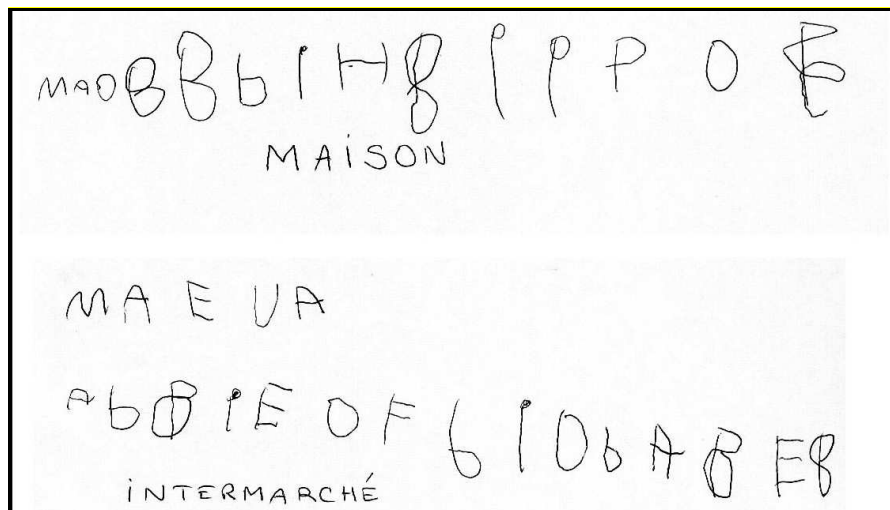 MAOBBbIHBPPPOB
MAiSON
MA E UA
AbBIEOFbIObABE8
iNTERMARCHÉ